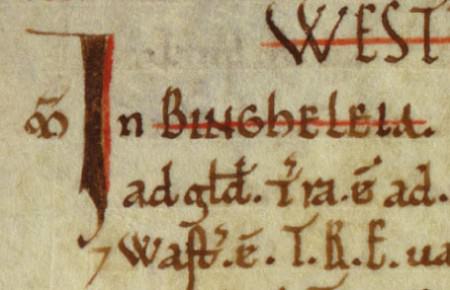 WEST
m̄ In BINGHELEIA.
ad gld̄. T̕ra. ē ad.
⁊ Waſt̕. ē. T. R. E. ua